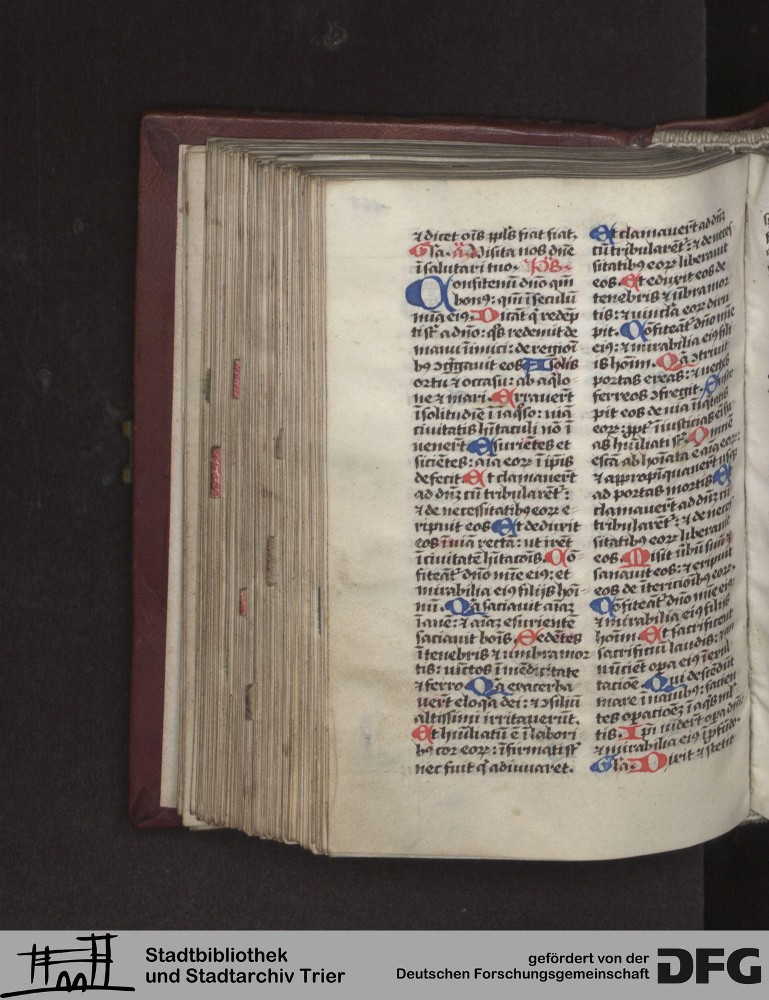 ⁊ dicet oīs ppl̄s fiat fiat.
Gl̄a. Visita nos dn̄e
ī salutari tuo. Ps̄.
Confitemī dn̄o qm̄
bonꝰ: qm̄ ī seculū
mīa eiꝰ. Dicāt q̇ redēp
ti s̄t a dn̄o: qͦs redemit de
manu inimici: de regioī
bꝰ ꝯg̃gauit eos. A solis
ortu ⁊ occasu: ab aq̇lo
ne ⁊ mari. Errauer̄t
ī solitudīe ī iaq̇so: uiā
ciuitatis hītaculi nō ī
uener̄t. Esuriētes et
siciētes: aīa eoꝝ ī ip̄is
defecit. Et clamauer̄t
ad dn̄ꝫ cū tribularēt̉:
⁊ de necessitatibꝰ eoꝝ e
ripuit eos. Et deduxit
eos ī uiā rectā: ut irēt
ī ciuitatē hītacōis. Cō
fiteāt̉ dn̄o mīe eiꝰ: et
mirabilia eiꝰ filijs hoī
nū. Q̇a saciauit aīaꝫ
īanē: ⁊ aīaꝫ esuriente
saciauit boīs. Sedētes
ī tenebris ⁊ umbra mor
tis: uīctos ī mēdicitate
⁊ ferro. Q̇a exacerba
uer̄t eloq̇a dei: ⁊ ꝯsiliū
altissimi irritauerūt.
Et hūiliatū ē ī labori
bꝰ cor eoꝝ: īfirmati s̄t
nec fuit q̇ adiuuaret.
Et clamauer̄t ad dn̄ꝫ
cū tribularēt̉: ⁊ de neces
sitatibꝰ eoꝝ liberauit
eos. Et eduxit eos de
tenebris ⁊ ūbra mor
tis: ⁊ uincl̄a eoꝝ diru
pit. Cōfiteāt̉ dn̄o mīe
eiꝰ: ⁊ mirabilia eiꝰ fili
is hoīm. Q̇a ꝯtriuit
portas ereas: ⁊ uectes
ferreos ꝯfregit. Susce
pit eos de uia īiq̇tatis
eoꝝ: ꝓpt̉ iniusticias eī sū
as hūiliati s̄t. Omnē
escā abhoīata ē aīa eoꝝ:
⁊ appropīquauer̄t usqꝫ
ad portas mortis. Et
clamauer̄t ad dn̄ꝫ cū
tribularēt̉: ⁊ de neces
sitatibꝰ eoꝝ liberauit
eos. Misit ūbū suū ⁊
sanauit eos: ⁊ eripuit
eos de ītericiōibꝰ eoꝝ.
Cōfiteāt̉ dn̄o mīe eiꝰ:
⁊ mirabilia eiꝰ filijs
hoīm. Et sacrificent
sacrificiū laudis: ⁊ an
nūciēt opa eiꝰ ī exul
tacioē. Qui descēdūt
mare ī nauibꝰ: facien
tes opacioēꝫ ī aq̇s ml̄
tis. Ip̄i uider̄t opa dn̄i:
⁊ mirabilia eiꝰ ī ꝓfūdo.
Gl̄a. Dixit ⁊ stetit
Stadtbibliothek
und Stadtarchiv Trier
gefördert von der
Deutschen Forschungsgemeinschaft
DFG